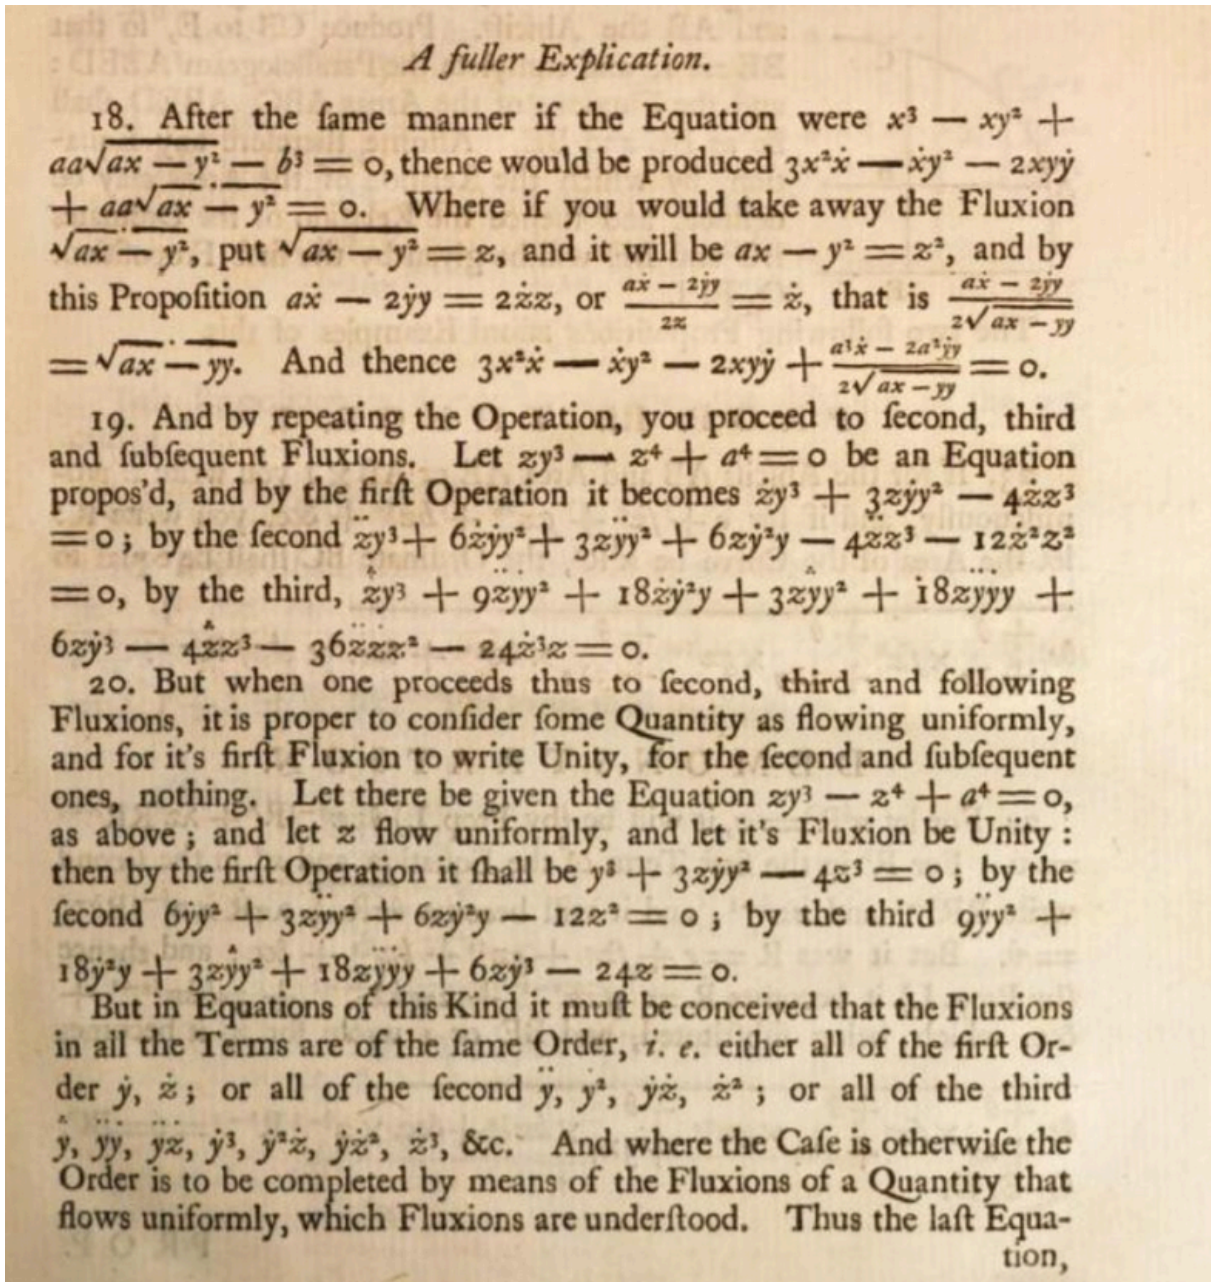 A fuller Explication.
18. After the ſame manner if the Equation were x³ — xy² +
aa√(ax — y²) — b³ = 0, thence would be produced 3x²ẋ — ẋy² — 2xyẏ
+ aa√(ax — y²)˙ = 0. Where if you would take away the Fluxion
√(ax — y²)˙, put √(ax — y²) = z, and it will be ax — y² = z², and by
this Propoſition aẋ — 2ẏy = 2żz, or (aẋ — 2ẏy)/2z = ż, that is (aẋ — 2ẏy)/2√(ax — yy)
= √(ax — yy)˙. And thence 3x²ẋ — ẋy² — 2xyẏ + (a³ẋ — 2a²ẏy)/2√(ax — yy) = 0.
19. And by repeating the Operation, you proceed to ſecond, third
and ſubſequent Fluxions. Let zy³ — z⁴ + a⁴ = 0 be an Equation
propos'd, and by the firſt Operation it becomes ży³ + 3zẏy² — 4żz³
= 0; by the ſecond z̈y³ + 6żẏy² + 3zÿy² + 6zẏ²y — 4z̈z³ — 12ż²z²
= 0, by the third, z⃛y³ + 9z̈ẏy² + 18żẏ²y + 3zy⃛y² + 18zÿẏy +
6zẏ³ — 4z⃛z³ — 36z̈żz² — 24ż³z = 0.
20. But when one proceeds thus to ſecond, third and following
Fluxions, it is proper to conſider ſome Quantity as flowing uniformly,
and for it's firſt Fluxion to write Unity, for the ſecond and ſubſequent
ones, nothing. Let there be given the Equation zy³ — z⁴ + a⁴ = 0,
as above; and let z flow uniformly, and let it's Fluxion be Unity:
then by the firſt Operation it ſhall be y³ + 3zẏy² — 4z³ = 0; by the
ſecond 6ẏy² + 3zÿy² + 6zẏ²y — 12z² = 0; by the third 9ÿy² +
18ẏ²y + 3zy⃛y² + 18zÿẏy + 6zẏ³ — 24z = 0.
But in Equations of this Kind it muſt be conceived that the Fluxions
in all the Terms are of the ſame Order, i. e. either all of the firſt Or-
der ẏ, ż; or all of the ſecond ÿ, y², ẏż, ż²; or all of the third
y⃛, ÿẏ, ÿż, ẏ³, ẏ²ż, ẏż², ż³, &c. And where the Caſe is otherwiſe the
Order is to be completed by means of the Fluxions of a Quantity that
flows uniformly, which Fluxions are underſtood. Thus the laſt Equa-
tion,